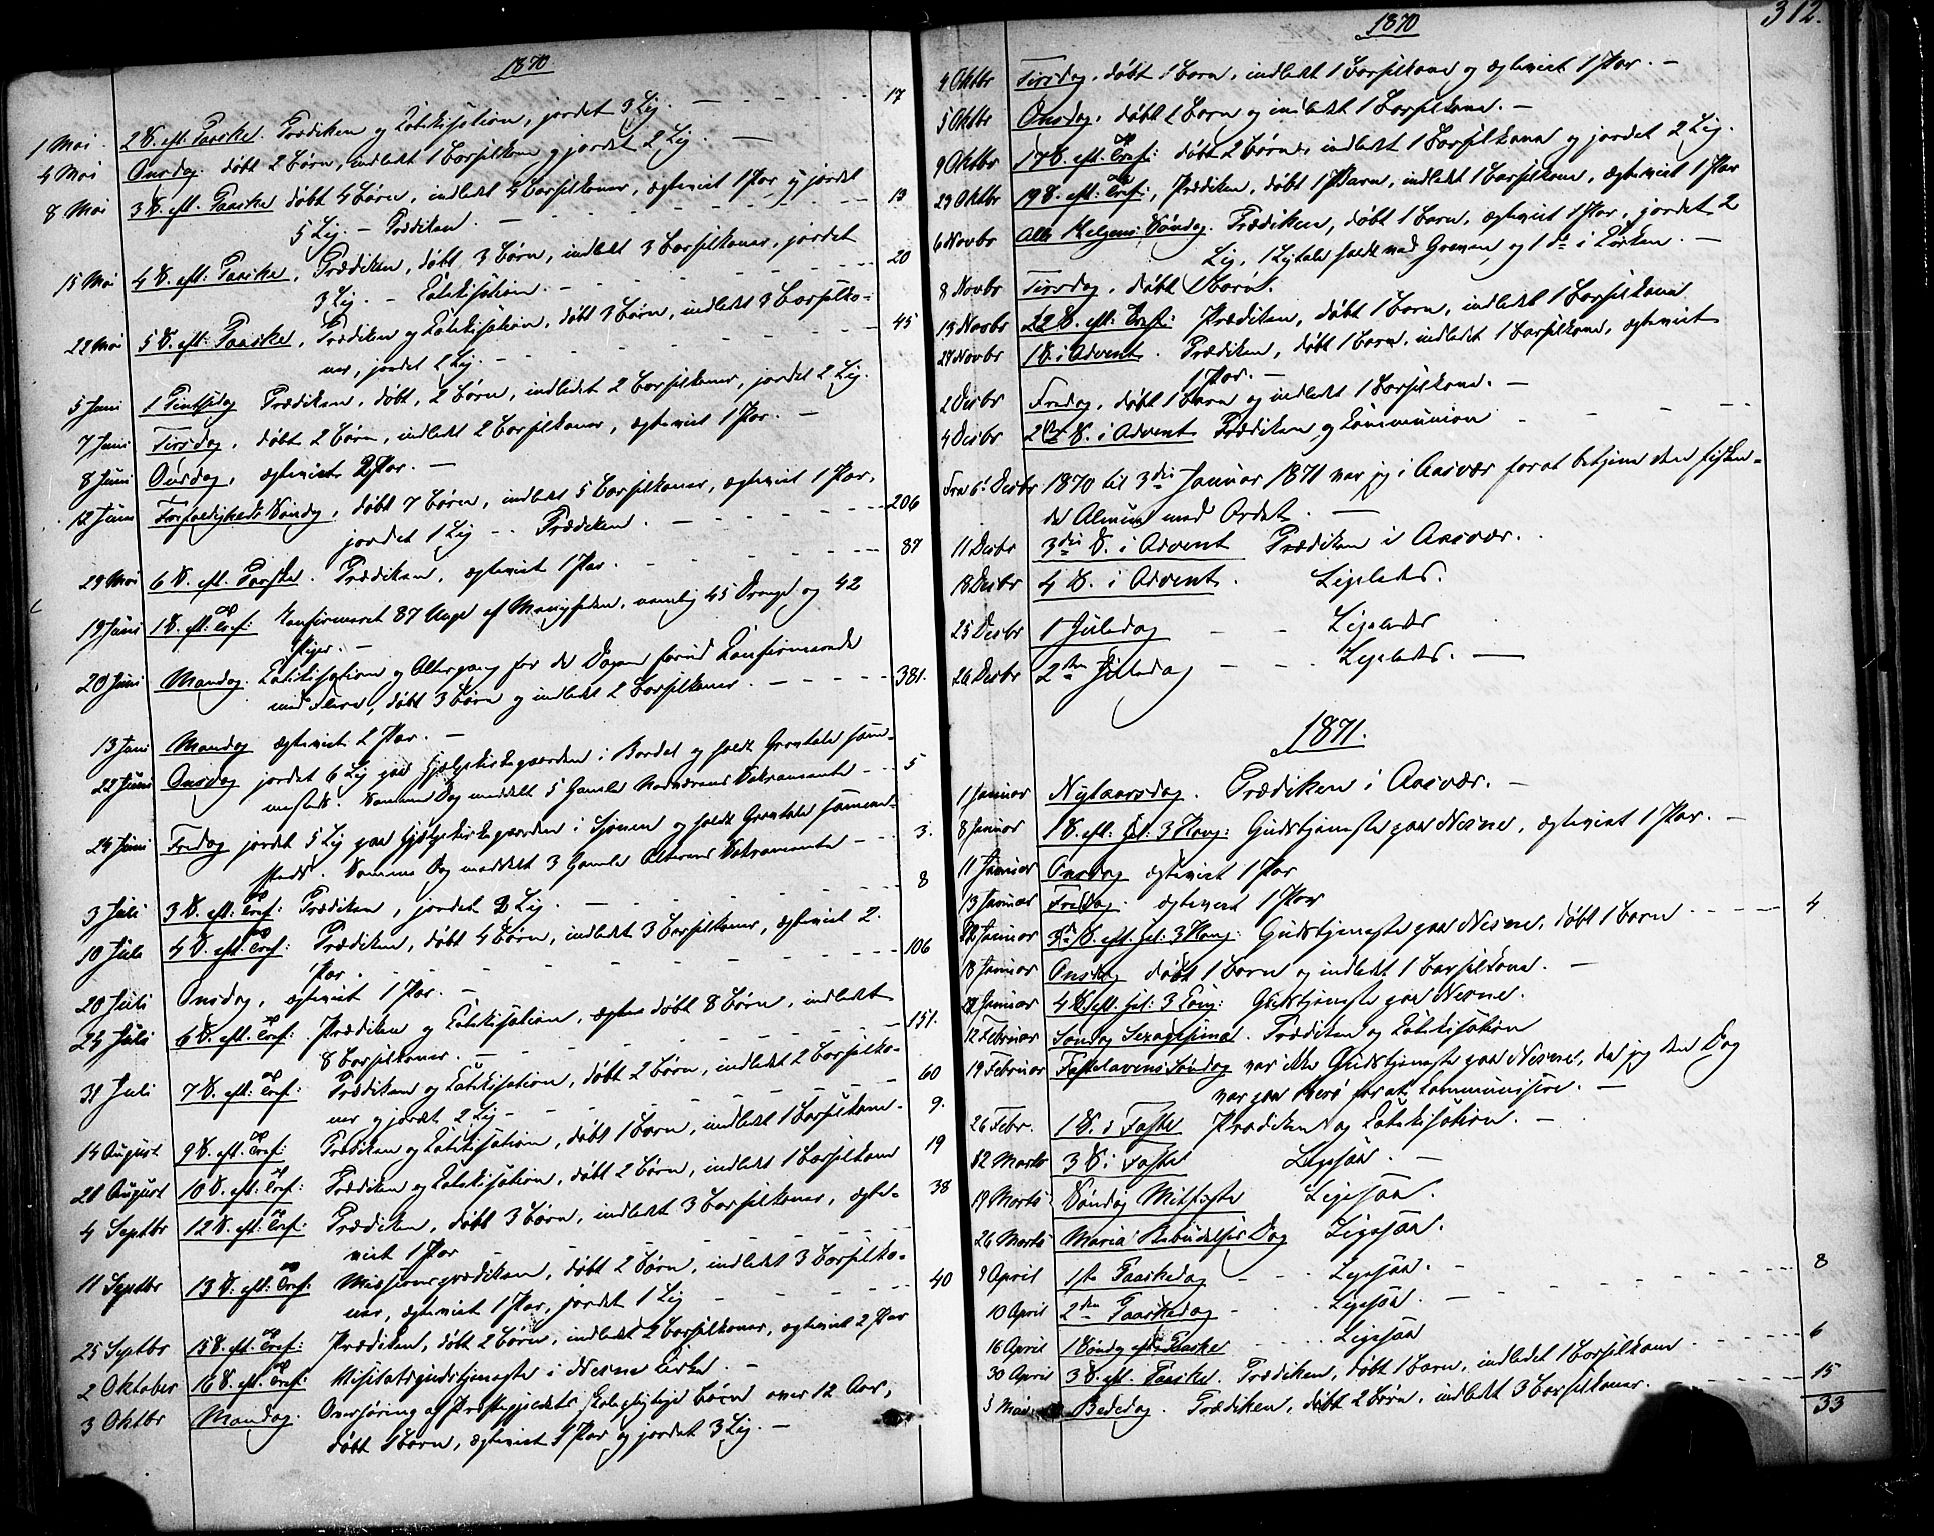 1870
1 Mai. 2 S. eft. Paaske. Prædiken og Katekisation, jordet 3 Lig. 17
4 Mai Onsdag. døbt 2 Børn, indledet 1 Barselkone og jordet 2 Lig. —
8 Mai 3 S. eft. Paaske døbt 4 Børn, indledet 4 Barselkoner, ægteviet 1 Par og jordet
5 Lig. — Prædiken. 13
15 Mai 4 S. eft. Paaske, Prædiken, døbt 3 Børn, indledt 3 Barselkoner, jordet
3 Lig. — Katekisation. 20
22 Mai 5 S. eft: Paaske, Prædiken og Katekisation, døbt 3 Børn, indledet 3 Barselko-
ner, jordet 2 Lig. 45
5 Juni 1 Pintsedag Prædiken, døbt, 2 Børn, indledet 2 Barselkoner, jordet 2 Lig.
7 Juni Tirsdag, døbt 2 Børn, indledet 2 Barselkoner, ægteviet 1 Par. —
8 Juni Onsdag, ægteviet 2 Par. —
12 Juni Trefoldigheds Søndag, døbt 7 Børn, indledet 5 Barselkoner, ægteviet 1 Par,
jordet 1 Lig — Prædiken. 206
29 Mai 6 S. eft. Paaske. Prædiken, ægteviet 1 Par. 87
19 Juni 1 S. eft: Tref: Konfirmeret 87 Unge af Menigheden, nemlig 45 Drenge og 42
Piger. —
20 Juni Mandag. Katekisation og Altergang for de Dagen forud Konfirmerede
med Flere, døbt 3 Børn og indledet 2 Barselkoner. 381.
13 Juni Mandag ægteviet 2 Par. —
22 Juni Onsdag jordet 6 Lig paa Hjelpekirkegaarden i Bardal og holdt Gravtale sam-
mesteds. Samme Dag meddelt 5 Gamle Nadverens Sakramente 5
24 Juni Fredag jordet 5 Lig paa Hjelpekirkegaarden i Sjonen og holdt Gravtale sammen-
steds. Samme Dag meddelt 3 Gamle Alterens Sakramente 3.
3 Juli 3 S. eft: Tref: Prædiken, jordet 2 Lig. 8
10 Juli 4 S. eft: Tref: Prædiken, døbt 4 Børn, indledet 3 Barselkoner, ægteviet 2.
Par. 106
20 Juli Onsdag, ægteviet 1 Par. —
24 Juli 6 S. eft. Tref: Prædiken og Katekisation, døbt 8 Børn, indledet
8 Barselkoner. 151.
31 Juli 7 S. eft: Tref: Prædiken og Katekisation, døbt 2 Børn, indledet 2 Barselko-
ner og jordet 2 Lig 60
14 August 9 S. eft. Tref: Prædiken og Katekisation, døbt 1 Barn, indledet 1 Barselkone. 9.
21 August 10 S. eft. Tref: Prædiken og Katekisation, døbt 2 Børn, indledet 1 Barselkone 19
4 Septbr 12 S. eft: Tref: Prædiken, døbt 3 Børn, indledet 3 Barselkoner, ægte-
viet 1 Par 38
11 Septbr 13 S. eft: Tref: Missionsprædiken, døbt 2 Børn, indledet 3 Barselko-
ner, ægteviet 1 Par, jordet 1 Lig 40
25 Septbr 15 S. eft. Tref: Prædiken, døbt 2 Børn, indledet 2 Barselkoner, ægteviet 2 Par
2 Oktober 16 S. eft. Tref: Visitatsgudstjeneste i Nesne Kirke. —
3 Oktbr Mandag. Overhøring af Præstegjeldets skolepligtige Børn over 12 Aar,
døbt 1 Barn, ægteviet 1 Par og jordet 3 Lig. —
1870 312.
4 Oktbr Tirsdag, døbt 1 Barn, indledet 1 Barselkone og ægteviet 1 Par. —
5 Oktbr Onsdag, døbt 2 Børn og indledet 1 Barselkone. —
9 Oktbr 17 S. eft. Tref: døbt 2 Børn, indledet 1 Barselkone og jordet 2 Lig.
23 Oktbr 19 S. eft: Tref:, Prædiken, døbt 1 Barn, indledet 1 Barselkone, ægteviet 1 Par
6 Novbr Alle Helgens Søndag. Prædiken, døbt 1 Barn, ægteviet 1 Par, jordet 2
Lig, 1 Ligtale holdt ved Graven og 1 do i Kirken. —
8 Novbr Tirsdag, døbt Børn.
13 Novbr 22 S. eft: Tref: Prædiken, døbt 1 Barn, indledet 1 Barselkone
27 Novbr 1 S. i Advent. Prædiken, døbt 1 Barn, indledet 1 Barselkone, ægteviet
1 Par. —
2 Desbr Fredag, døbt 1 Barn og indledet 1 Barselkone. —
4 Desbr 2den S. i Advent Prædiken og Kommunion
Fra 6. Desbr 1870 til 3die Januar 1871 var jeg i Aasvær forat betjene den fisken-
de Almue med Ordet. —
11 Desbr 3die S. i Advent Prædiken i Aasvær.
18 Desbr 4 S. i Advent. Ligeledes.
25 Desbr 1 Juledag Ligeledes
26 Desbr 2den Juledag Ligeledes. —
1871.
1 Januar Nytaarsdag. Prædiken i Aasvær. —
8 Januar 1 S. eft. Hel: 3 Kong: Gudstjeneste paa Nesne, ægteviet 1 Par. —
11 Januar Onsdag ægteviet 1 Par
13 Januar Fredag. ægteviet 1 Par
22 Januar 3die S. eft. Hel: 3 Kong: Gudstjeneste paa Nesne, døbt 1 Barn 4
18 Januar Onsdag døbt 1 Barn og indledet 1 Barselkone. —
29 Januar 4 S. eft. Hel: 3 Kong: Gudstjeneste paa Nesne.
12 Februar Søndag Sexagesima. Prædiken og Katekisation
19 Februar Fastelavens Søndag var ikke Gudstjeneste paa Nesne, da jeg den Dag
var paa Herø for at kommunisere. —
26 Febr. 1 S. i Faste Prædiken og Katekisation. —
12 Marts 3 S. i Faste Ligesaa. —
19 Marts Søndag Midfaste Ligesaa.
26 Marts Mariæ Bebudelses Dag Ligesaa.
9 April 1ste Paaskedag Ligesaa. 8
10 April 2den Paaskedag Ligesaa.
16 April 1 Søndag eft. Paaske Ligesaa
30 April 3 S. eft. Paaske. Prædiken, døbt 1 Barn, indledet 1 Barselkone. 6
5 Mai Bededag. Prædiken, døbt 2 Børn, indledet 3 Barselkoner. 15
33